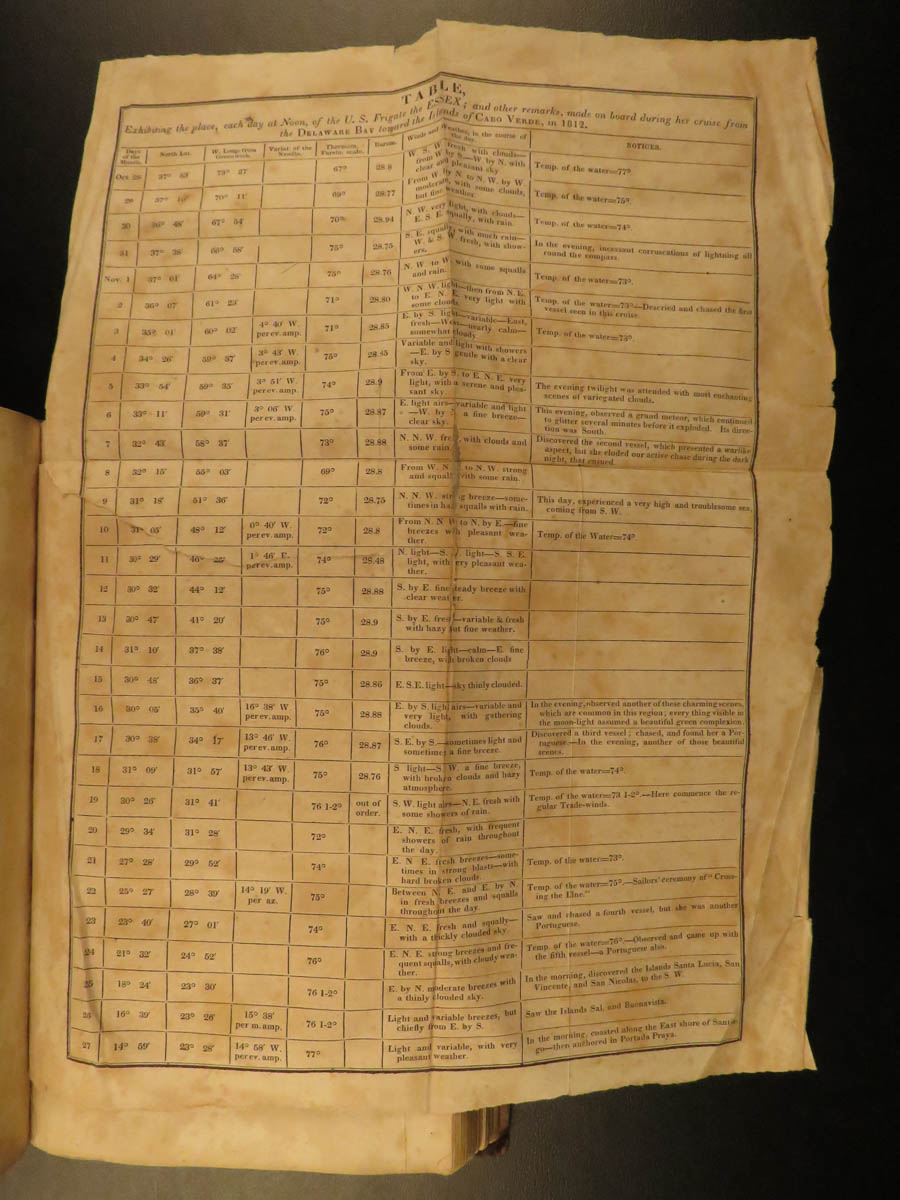 TABLE,
Exhibiting the place, each day at Noon, of the U. S. Frigate the ESSEX; and other remarks, made on board during her cruise from
the DELAWARE BAY toward the Islands of CABO VERDE, in 1812.
Days of the Month. North Lat. W. Long. from Greenwich. Variat of the Needle. Thermom. Farein. scale. Barom. Winds and Weather, in the course of the day. NOTICES.
Oct 28 37° 53′ 73° 27′ 67° 28.8 W. S. W. fresh with clouds—from W by S.—W by N. with clear and pleasant sky Temp. of the water=77°
29 37° 10′ 70° 11′ 69° 28.77 From W. by N. to N. W. by W. moderate, with some clouds, but fine weather. Temp. of the water=75°.
30 36° 48′ 67° 54′ 70° 28.94 N. W. very light, with clouds—E. S. E. squally, with rain. Temp. of the water=74°.
31 37° 38′ 66° 58′ 75° 28.75 S. E. squally, with much rain—W. & S. W. fresh, with showers. In the evening, incessant corruscations of lightning all round the compass.
Nov. 1 37° 01′ 64° 28′ 75° 28.76 N. W. to W. with some squalls and rain. Temp. of the water=73°.
2 36° 07′ 61° 23′ 71° 28.80 W N. W. light—then from N. E. to E. N. E. very light with some clouds. Temp. of the water=73°—Descried and chased the first vessel seen in this cruise.
3 35° 01′ 60° 02′ 4° 40′ W. per ev. amp. 71° 28.85 E. by S. light—variable—East, fresh—West—nearly calm—somewhat cloudy Temp. of the water=73°.
4 34° 26′ 59° 37′ 3° 43′ W per ev. amp. 75° 28.85 Variable and light with showers—E. by S gentle with a clear sky.
5 33° 54′ 59° 35′ 3° 51′ W. per ev. amp. 74° 28.9 From E. by S. to E. N. E. very light, with a serene and pleasant sky. The evening twilight was attended with most enchanting scenes of variegated clouds.
6 33° 11′ 59° 31′ 3° 06′ W. per ev. amp. 75° 28.87 E. light airs—variable and light—W. by S. a fine breeze—clear sky. This evening, observed a grand meteor, which continued to glitter several minutes before it exploded. Its direction was South.
7 32° 43′ 58° 37′ 73° 28.88 N. N. W. fresh, with clouds and some rain. Discovered the second vessel, which presented a warlike aspect, but she eluded our active chase during the dark night, that ensued
8 32° 15′ 55° 03′ 69° 28.8 From W. N. W. to N. W. strong and squally with some rain.
9 31° 18′ 51° 36′ 72° 28.75 N. N. W. strong breeze—sometimes in hard squalls with rain. This day, experienced a very high and troublesome sea, coming from S. W.
10 31° 05′ 48° 12′ 0° 40′ W. per ev. amp. 72° 28.8 From N. N W. to N. by E.—fine breezes with pleasant weather Temp. of the Water=74°.
11 30° 29′ 46° 25′ 1° 46′ E. per ev. amp. 74° 28.48 N. light—S. W. light—S. S. E. light, with very pleasant weather.
12 30° 32′ 44° 12′ 75° 28.88 S. by E fine steady breeze with clear weather.
13 30° 47′ 41° 20′ 75° 28.9 S. by E. fresh—variable & fresh with hazy but fine weather.
14 31° 10′ 37° 38′ 76° 28.9 S. by E. light—calm—E. fine breeze, with broken clouds
15 30° 48′ 36° 37′ 75° 28.86 E. S.E. light—sky thinly clouded.
16 30° 05′ 35° 40′ 16° 38′ W per ev. amp. 75° 28.88 E. by S. light airs—variable and very light, with gathering clouds. In the evening, observed another of these charming scenes, which are common in this region; every thing visible in the moon-light assumed a beautiful green complexion.
17 30° 38′ 34° 17′ 13° 46′ W. per ev. amp. 76° 28.87 S. E. by S.—sometimes light and sometimes a fine breeze. Discovered a third vessel; chased, and found her a Portuguese.—In the evening, another of those beautiful scenes.
18 31° 09′ 31° 57′ 13° 43′ W. per ev. amp. 75° 28.76 S light—S. W. a fine breeze, with broken clouds and hazy atmosphere. Temp. of the water=74°.
19 30° 26′ 31° 41′ 76 1-2° out of order. S. W. light airs—N. E. fresh with some showers of rain. Temp. of the water=73 1-2°.—Here commence the regular Trade-winds.
20 29° 34′ 31° 28′ 72° E. N. E. fresh, with frequent showers of rain throughout the day.
21 27° 28′ 29° 52′ 74° E. N E. fresh breezes—sometimes in strong blasts—with hard broken clouds Temp. of the water=73°.
22 25° 27′ 28° 39′ 14° 19′ W. per az. 75° Between N. E. and E. by N. in fresh breezes and squalls throughout the day. Temp. of the water=75°.—Sailors' ceremony of "Crossing the Line."
23 23° 40′ 27° 01′ 74° E. N. E. fresh and squally—with a thickly clouded sky. Saw and chased a fourth vessel, but she was another Portuguese.
24 21° 32′ 24° 52′ 76° E. N. E strong breezes and frequent squalls, with cloudy weather. Temp. of the water=76°—Observed and came up with the fifth vessel—a Portuguese also.
25 18° 24′ 23° 30′ 76 1-2° E. by N. moderate breezes with a thinly clouded sky. In the morning, discovered the Islands Santa Lucia, San Vincente, and San Nicolas, to the S. W.
26 16° 39′ 23° 26′ 15° 38′ per m. amp. 76 1-2° Light and variable breezes, but chiefly from E. by S. Saw the Islands Sal, and Buonavista.
27 14° 59′ 23° 28′ 14° 58′ W. per ev. amp. 77° Light and variable, with very pleasant weather. In the morning, coasted along the East shore of Santiago—then anchored in Portada Praya.